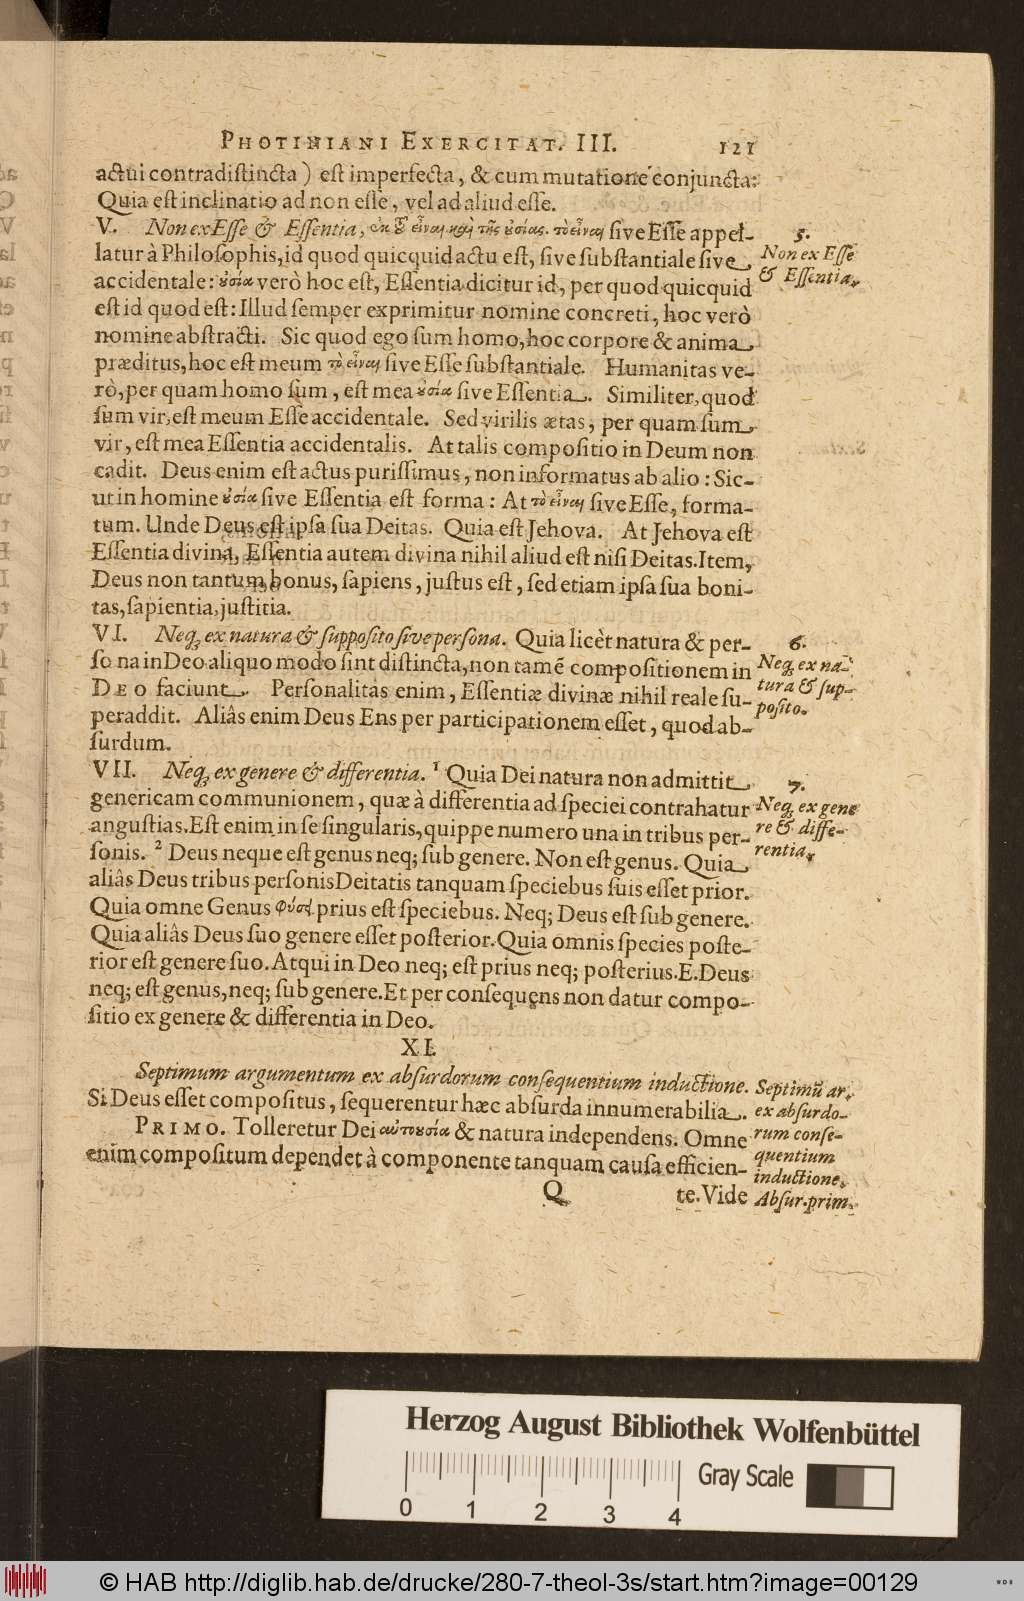 PHOTINIANI EXERCITAT. III. 121
actui contradistincta) est imperfecta, & cum mutatione conjuncta:
Quia est inclinatio ad non esse, vel ad aliud esse.
V. Non ex Esse & Essentia, ἐκ τοῦ εἶναι καὶ τῆς οὐσίας. τὸ εἶναι sive Esse appel-
latur à Philosophis, id quod quicquid actu est, sive substantiale sive
accidentale: οὐσία verò hoc est, Essentia dicitur id, per quod quicquid
est id quod est: Illud semper exprimitur nomine concreti, hoc verò
nomine abstracti. Sic quod ego sum homo, hoc corpore & anima
præditus, hoc est meum τὸ εἶναι sive Esse substantiale. Humanitas ve-
rò, per quam homo sum, est mea οὐσία sive Essentia. Similiter, quod
sum vir, est meum Esse accidentale. Sed virilis ætas, per quam sum
vir, est mea Essentia accidentalis. At talis compositio in Deum non
cadit. Deus enim est actus purissimus, non informatus ab alio: Sic-
ut in homine οὐσία sive Essentia est forma: At τὸ εἶναι sive Esse, forma-
tum. Unde Deus est ipsa sua Deitas. Quia est Jehova. At Jehova est
Essentia divina, Essentia autem divina nihil aliud est nisi Deitas. Item,
Deus non tantum bonus, sapiens, justus est, sed etiam ipsa sua boni-
tas, sapientia, justitia.
5.
Non ex Esse
& Essentia.
VI. Neq; ex natura & supposito sive persona. Quia licèt natura & per-
sona in Deo aliquo modo sint distincta, non tamē compositionem in
DEO faciunt. Personalitas enim, Essentiæ divinæ nihil reale su-
peraddit. Aliâs enim Deus Ens per participationem esset, quod ab-
surdum.
6.
Neq; ex na-
tura & sup-
posito.
VII. Neq; ex genere & differentia. 1 Quia Dei natura non admittit
genericam communionem, quæ à differentia ad speciei contrahatur
angustias. Est enim in se singularis, quippe numero una in tribus per-
sonis. 2 Deus neque est genus neq; sub genere. Non est genus. Quia
aliâs Deus tribus personis Deitatis tanquam speciebus suis esset prior.
Quia omne Genus φύσει prius est speciebus. Neq; Deus est sub genere.
Quia aliâs Deus suo genere esset posterior. Quia omnis species poste-
rior est genere suo. Atqui in Deo neq; est prius neq; posterius. E. Deus
neq; est genus, neq; sub genere. Et per consequens non datur compo-
sitio ex genere & differentia in Deo.
7.
Neq; ex gene
re & diffe-
rentia.
XI.
Septimum argumentum ex absurdorum consequentium inductione.
Si Deus esset compositus, sequerentur hæc absurda innumerabilia.
PRIMO. Tolleretur Dei αὐτουσία & natura independens. Omne
enim compositum dependet à componente tanquam causa efficien-
Septimū ar.
ex absurdo-
rum conse-
quentium
inductione.
Absur. prim.
Q te. Vide
Herzog August Bibliothek Wolfenbüttel
0 1 2 3 4
Gray Scale
© HAB http://diglib.hab.de/drucke/280-7-theol-3s/start.htm?image=00129